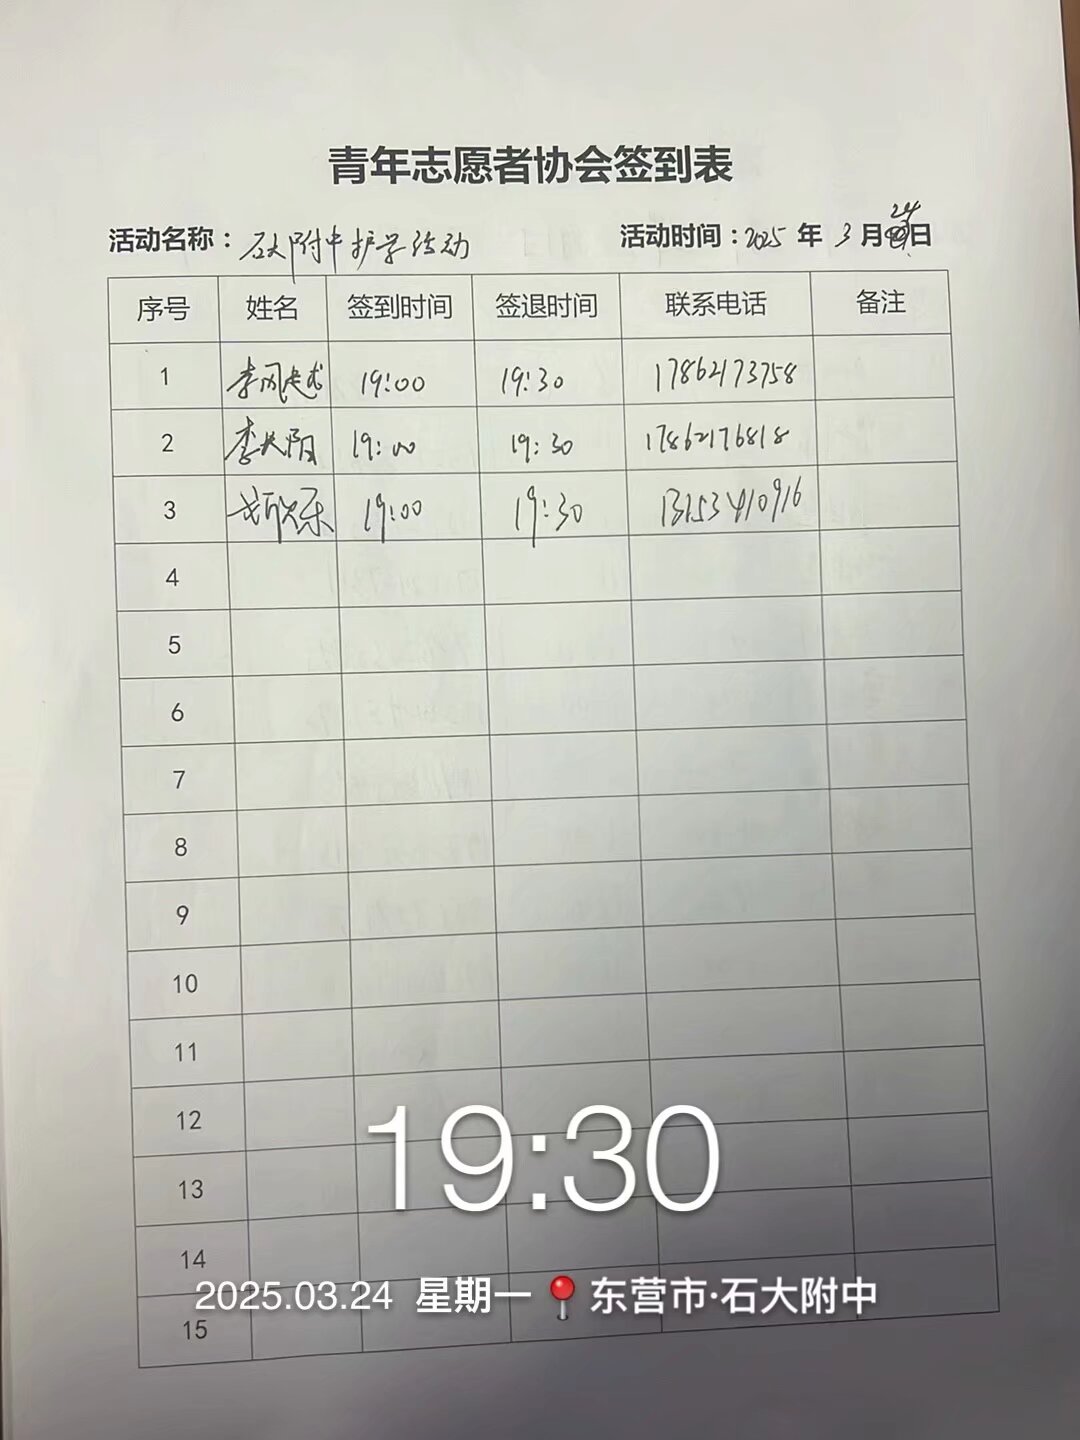 青年志愿者协会签到表
活动名称：石大附中护学活动 活动时间：2025 年 3 月 24 日
序号 姓名 签到时间 签退时间 联系电话 备注
1 李风 19:00 19:30 17862173758
2 李 阳 19:00 19:30 17862176818
3 乐 19:00 19:30 13153410916
4
5
6
7
8
9
10
11
12
13
14
15
19:30
2025.03.24 星期一 东营市·石大附中